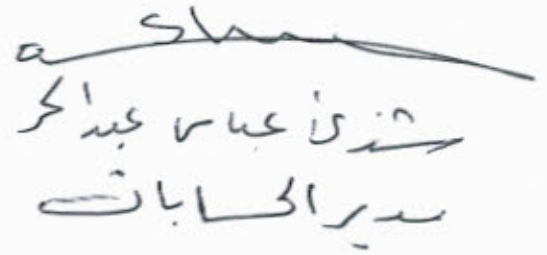 شذى عباس عبد الحر
مدير الحسابات